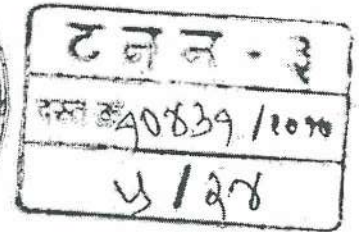 ट न न - ३
दस्त क्र १०४३१ / २०१०
५ / ३४